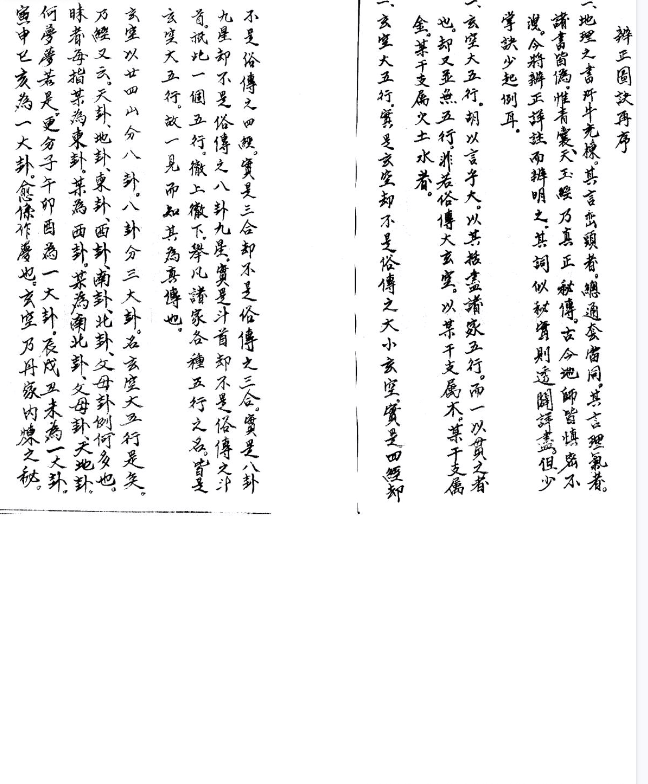 辨正圖訣再序
一、地理之書所牛充棟。其言巒頭者。總通套當同。其言理氣者。
諸書皆偽。惟青囊、天玉經乃真正秘傳。古今地師皆慎密不
洩。今將辨正詳註而辨明之。其詞似秘實則透闢詳盡。但少
掌訣少起例耳。
一、玄空大五行。胡以言乎大。以其括盡諸家五行。而一以貫之者
也。却又並無五行。非若俗傳大玄空。以某干支属木。某干支属
金。某干支属火土水者。
一、玄空大五行。實是玄空却不是俗傳之大小玄空。實是四經却
不是俗傳之四經。實是三合却不是俗傳之三合。實是八卦
九星却不是俗傳之八卦九星。實是斗首却不是俗傳之斗
首。祇此一個五行。徹上徹下。舉凡諸家各種五行之名。皆是
玄空大五行。故一見而知其為真傳也。
玄空以廿四山分八卦。八卦分三大卦。名玄空大五行是矣。
乃經又云。天卦、地卦東卦西卦、南卦北卦、父母卦例何多也。
昧者每指某為東卦。某為西卦。某為南北卦、父母卦、天地卦。
何夢夢若是。更分子午卯酉為一大卦。辰戌丑未為一大卦。
寅申巳亥為一大卦。愈係作夢也。玄空乃丹家內煉之秘。